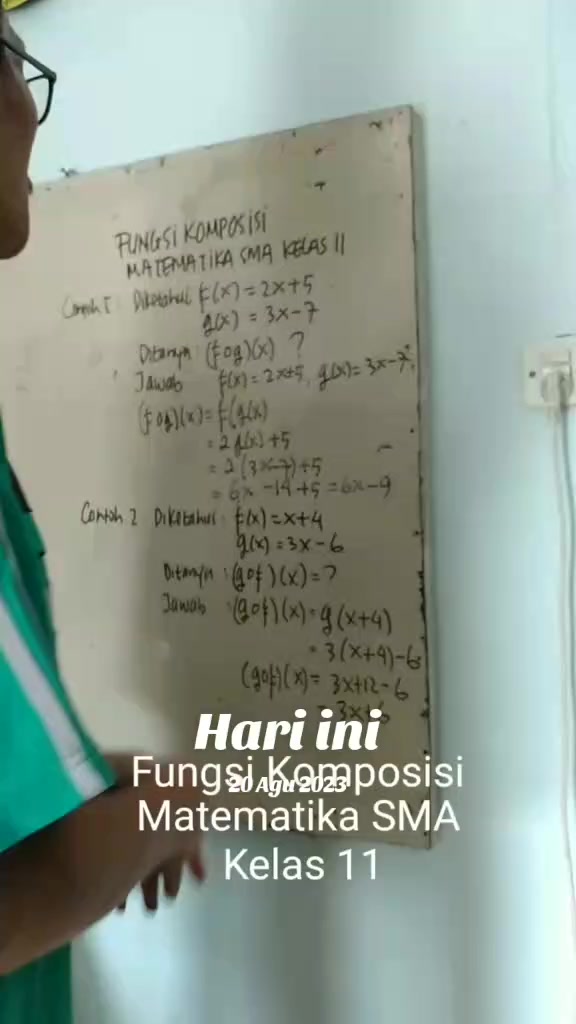 FUNGSI KOMPOSISI
MATEMATIKA SMA KELAS 11
Contoh 1: Diketahui f(x) = 2x+5
g(x) = 3x-7
Ditanya: (fog)(x) ?
Jawab f(x) = 2x+5, g(x) = 3x-7
(fog)(x) = f(g(x)
= 2g(x)+5
= 2(3x-7)+5
= 6x -14+5 = 6x-9
Contoh 2 Diketahui: f(x) = x+4
g(x) = 3x-6
Ditanya: (gof)(x) = ?
Jawab : (gof)(x) = g(x+4)
= 3(x+4)-6
(gof)(x) = 3x+12-6
= 3x+6
Hari ini
Fungsi Komposisi
20 Agu 2023
Matematika SMA
Kelas 11